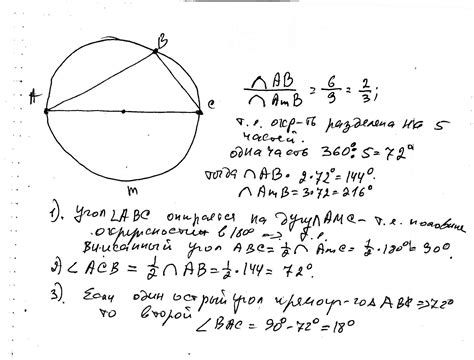 B
A
C
m
∩AB / ∩AmB = 6/9 = 2/3;
т.е. окр-ть разделена на 5
частей.
одна часть 360°:5=72°
тогда ∩AB = 2·72°=144°.
∩AmB=3·72=216°
1). угол ∠ABC опирается на дугу ∩AMC – т.е. половине
окружности в 180°
вписанный угол ABC=½∩AmC=½·180°=90°.
2) ∠ACB = ½∩AB=½·144=72°.
3). Если один острый угол прямоуг-го =>72°
то второй
∠BAC=90°-72°=18°